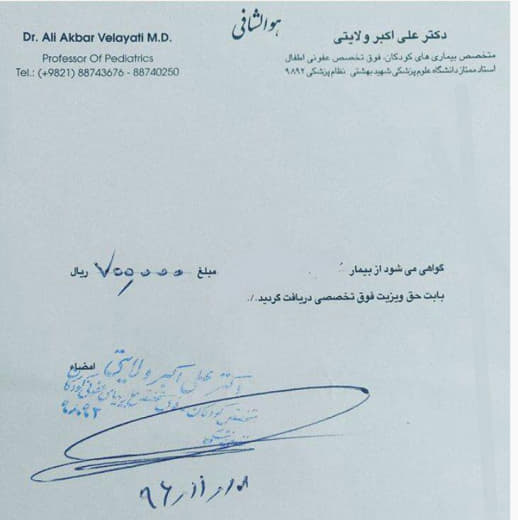 هوالشافی
دکتر علی اکبر ولایتی
متخصص بیماری های کودکان، فوق تخصص عفونی اطفال
استاد ممتاز دانشگاه علوم پزشکی شهید بهشتی نظام پزشکی ۹۸۹۲
Dr. Ali Akbar Velayati M.D.
Professor Of Pediatrics
Tel.: (+9821) 88743676 - 88740250
گواهی می شود از بیمار مبلغ ۷۰۰,۰۰۰ ریال
بابت حق ویزیت فوق تخصصی دریافت گردید./.
امضاء
دکتر علی اکبر ولایتی
متخصص کودکان فوق تخصص
۹۶